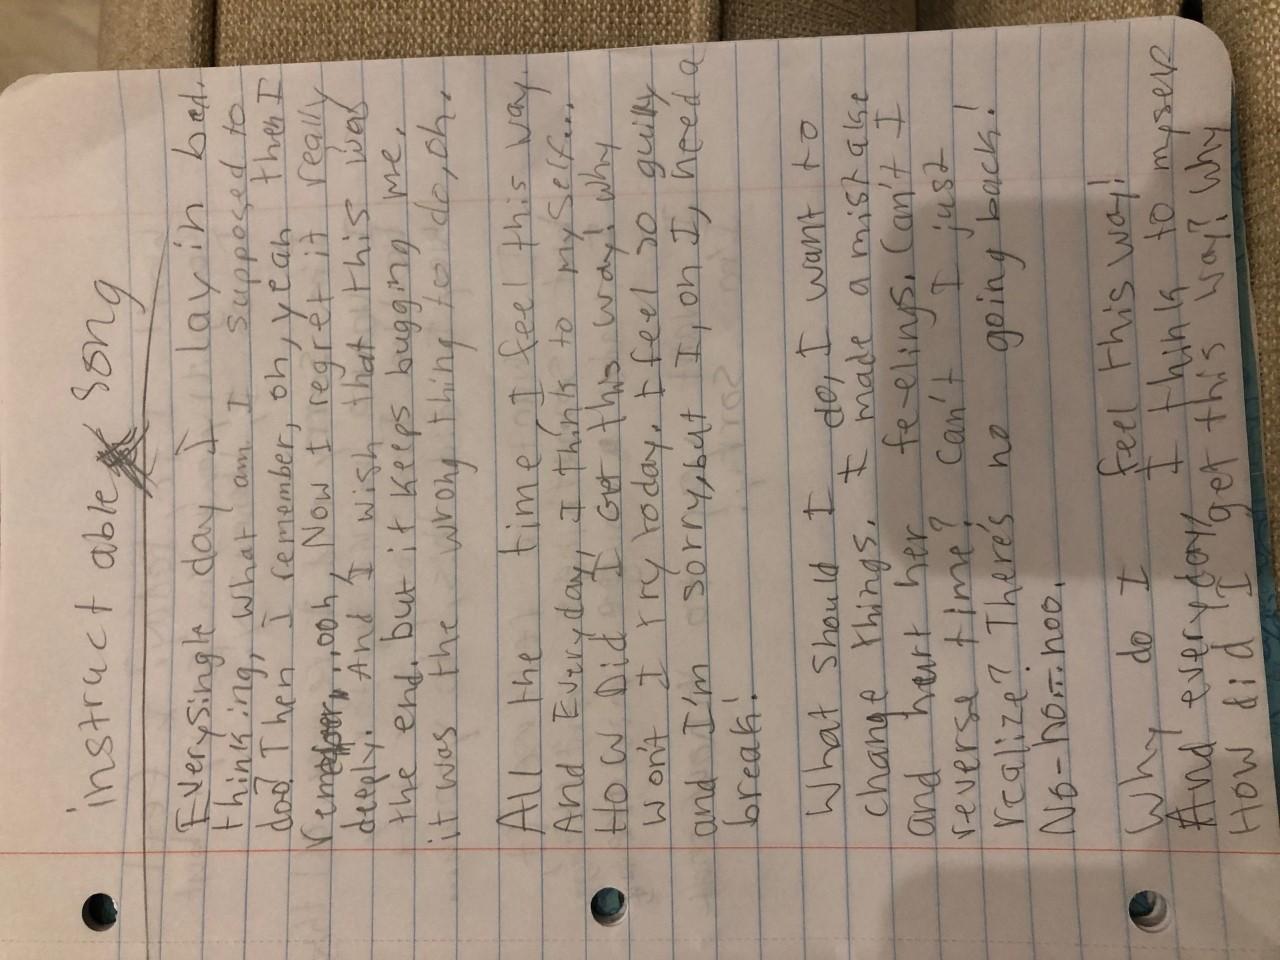 instruct able Song
Every single day I lay in bed.
thinking, what am I supposed to
doo? Then I remember, oh, yeah then I
remember,...ooh, Now I regret it really
deeply. And I wish that this was
the end, but it keeps bugging me.
it was the wrong thing to do, oh.
All the time I feel this way.
And Everyday, I think to myself...
How Did I Get this way! Why
won't I try today. I feel so guilty
and I'm sorry, but I, oh I, need a
break!
What should I do, I want to
change things. I made a mistake
and heart her fe-elings. Can't I
reverse time? Can't I just
realize? There's no going back!
No-no...noo.
Why do I feel this way!
And everyday, I think to myself
How did I get this way? Why